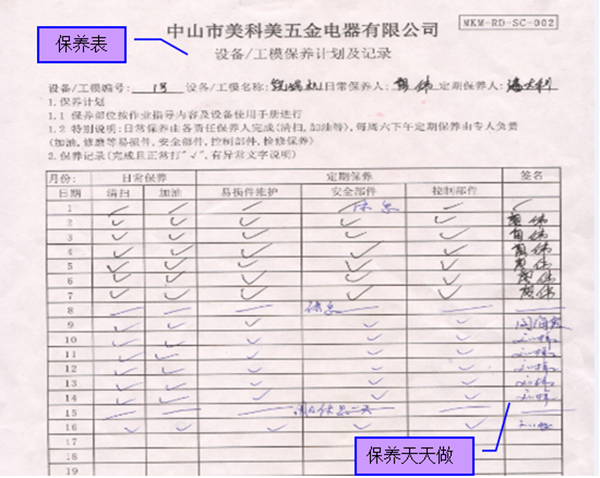 中山市美科美五金电器有限公司
MKM-RD-SC-002
保养表
设备/工模保养计划及记录
设备/工模编号: 1号 设备/工模名称: 日常保养人: 定期保养人:
1.保养计划
1.1 保养部位按作业指导内容及设备使用手册进行
1.2 特别说明:日常保养由各责任保养人完成(清扫,加油等),每周六下午定期保养由专人负责
(加油,修磨等易损件,安全部件,控制部件,检修保养)
2.保养记录(完成且正常打"√",有异常文字说明)
月份: 日常保养 定期保养 签名
日期 清扫 加油 易损件维护 安全部件 控制部件
1 ✓ ✓ ✓ ✓ 休息 ✓ ✓
2 ✓ ✓ ✓ ✓ ✓
3 ✓ ✓ ✓ ✓ ✓
4 ✓ ✓ ✓ ✓ ✓
5 ✓ ✓ ✓ ✓ ✓
6 ✓ ✓ ✓ ✓ ✓
7 ✓ ✓ ✓ ✓ ✓
8 休息
9 ✓ ✓ ✓ ✓ ✓
10 ✓ ✓ ✓ ✓ ✓
11 ✓ ✓ ✓ ✓ ✓
12 ✓ ✓ ✓ ✓ ✓
13 ✓ ✓ ✓ ✓ ✓
14 ✓ ✓ ✓ ✓ ✓
15 休息一天
16 ✓ ✓ ✓ ✓ ✓
17
18
19
保养天天做